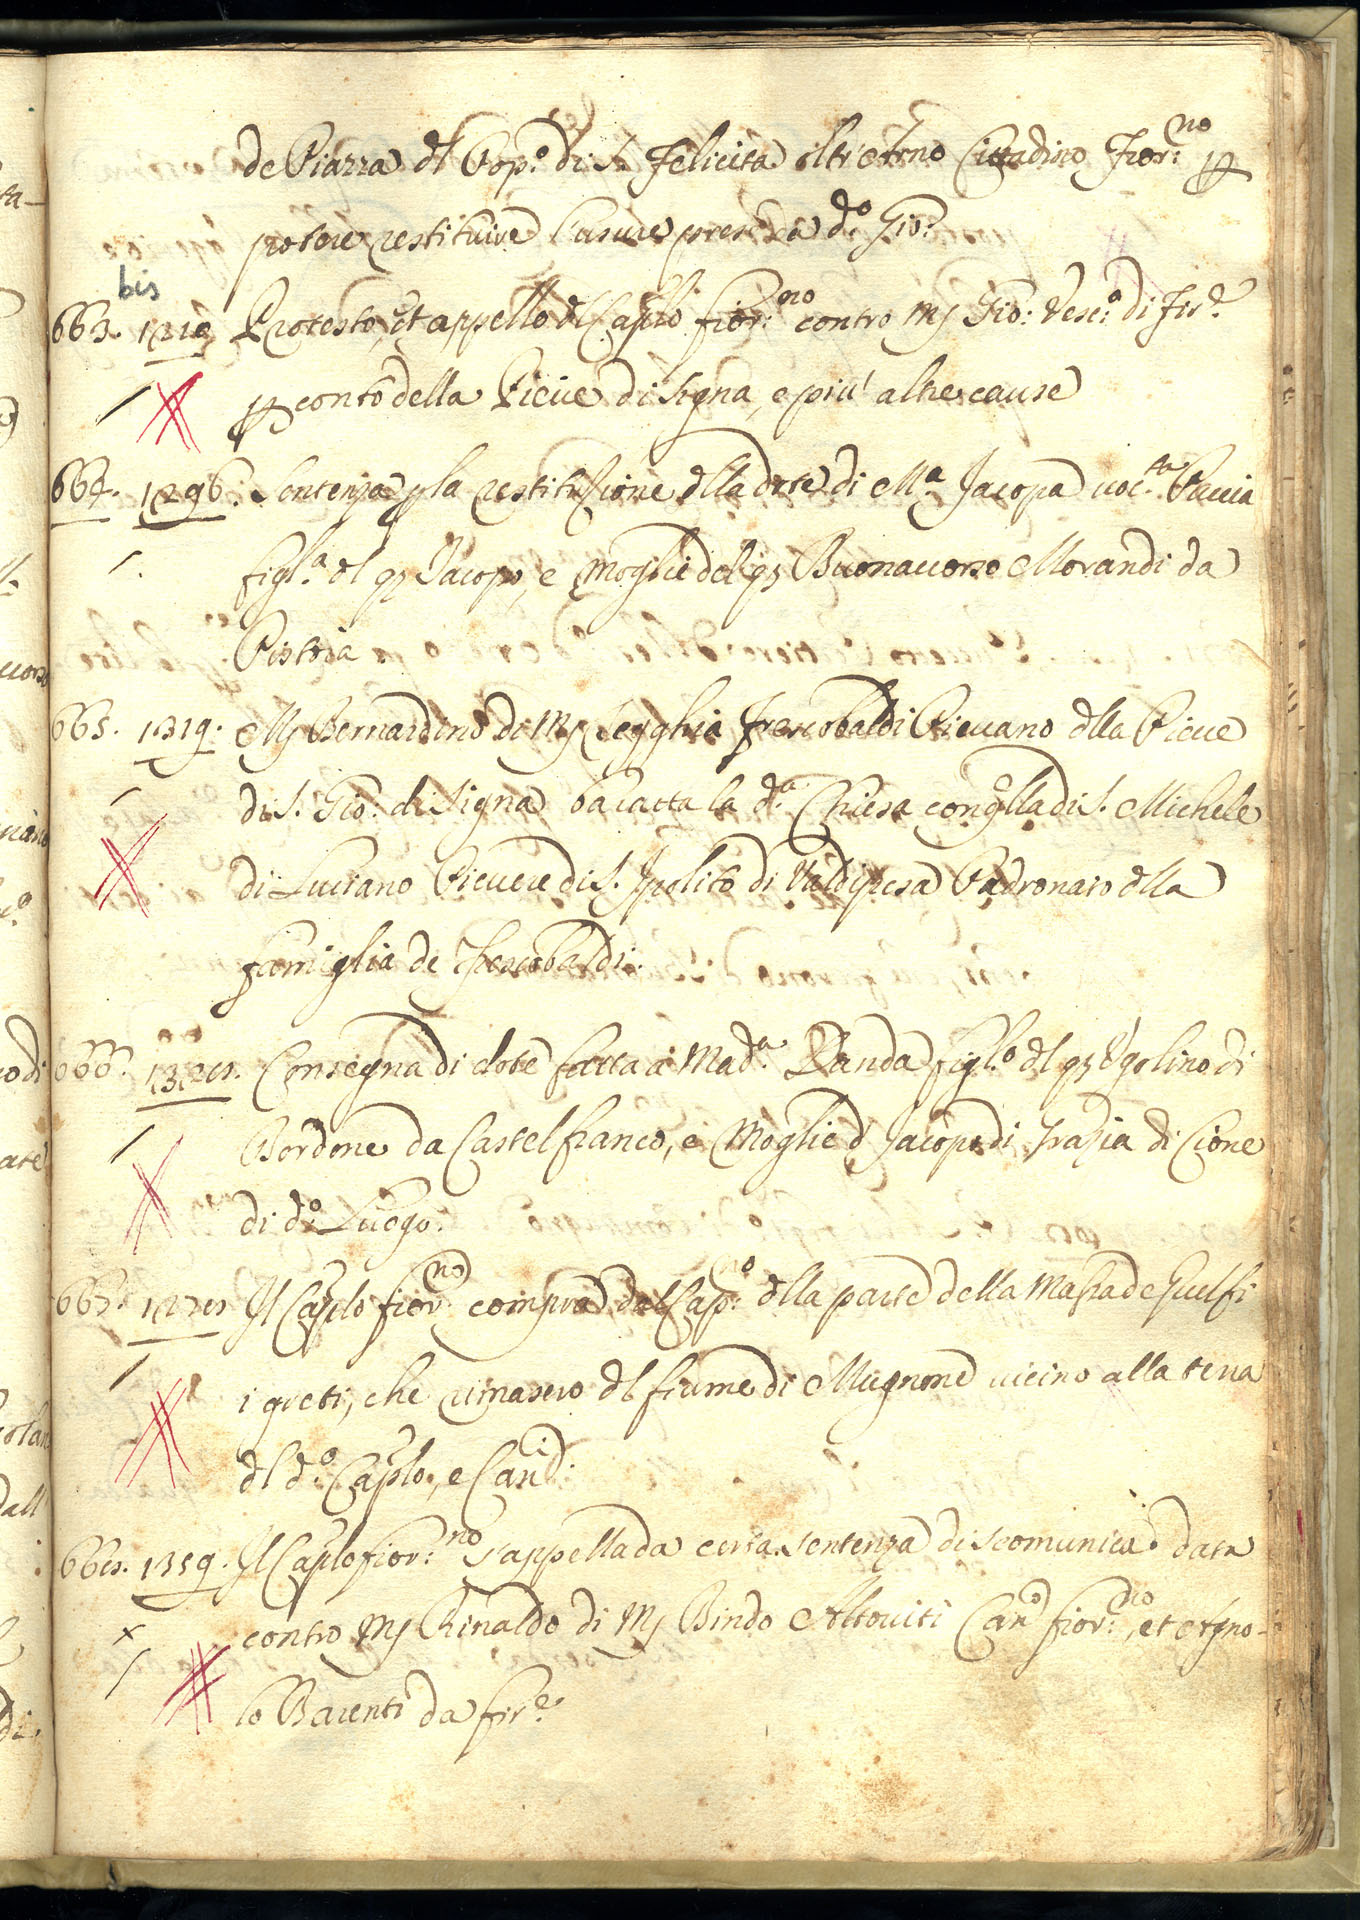 de Piazza dl Pop.º di S. Felicita oltr'Arno Cittadino Fior.no p
potere restituire l'usure prese da d.º Gio:
bis
663. 1319 Protesto, et appello dl Caplo fior:no contro Mj Gio: Vesc.º di Fir.e
p conto della Pieve di Signa, e più altre cause
664. 1296. Sentenza p la restituzione dlla dote di M.a Jacopa voc.ta Puccia
figl.a dl q Jacopo, e Moglie del q Buonaccorso Morandi da
Pistoia
665. 1319. Mj Bernardino di Mj Tegghia Frescobaldi Pievano dlla Pieve
di S. Gio: di Signa baratta la d.a Chiesa con qlla di S. Michele
di Luciano Pievere di S. Ipolito di Valdipesa Padronato dlla
famiglia de Frescobaldi.
666. Consegna di dote fatta a Mad.a Vanda figl.a dl q Ugolino di
Bordone da Castelfranco, e Moglie d Jacopo di Grazia di Cione
di d.º Luogo.
667. Il Caplo fior:no compra dal Cap:no dlla parte della Massa de Guelfi
i greti, che rimasero dl fiume di Mugnone vicino alla terra
dl d.º Caplo, e Can.i
668. 1359. Il Caplo fior:no s'appella da certa sentenza di scomunica data
contro Mj Rinaldo di Mj Bindo Altoviti Can.º fior:no, et Agno-
lo Barenti da Fir.e